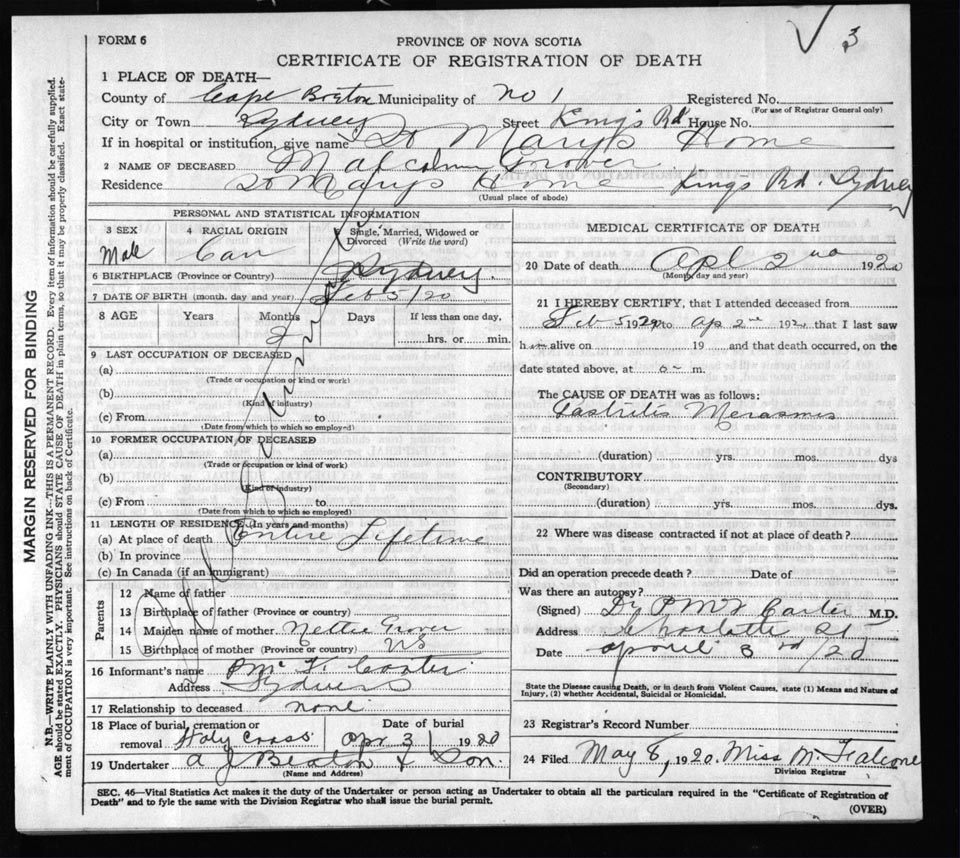 3
FORM 6
PROVINCE OF NOVA SCOTIA
CERTIFICATE OF REGISTRATION OF DEATH
1 PLACE OF DEATH—
County of Cape Breton Municipality of No 1 Registered No.
(For use of Registrar General only)
City or Town Sydney Street Kings Rd House No.
If in hospital or institution, give name St Marys Home
2 NAME OF DECEASED Malcolm Grover
Residence St Marys Home Kings Rd. Sydney
(Usual place of abode)
PERSONAL AND STATISTICAL INFORMATION
3 SEX Male
4 RACIAL ORIGIN Can
5 Single, Married, Widowed or Divorced (Write the word)
6 BIRTHPLACE (Province or Country) Sydney.
7 DATE OF BIRTH (month, day and year) Feb 5/20
8 AGE Years Months 2 Days If less than one day, hrs. or min.
9 LAST OCCUPATION OF DECEASED
(a)
(Trade or occupation or kind or work)
(b)
(Kind of industry)
(c) From to
(Date from which to which so employed)
10 FORMER OCCUPATION OF DECEASED
(a)
(Trade or occupation or kind of work)
(b)
(Kind or industry)
(c) From to
(Date from which to which so employed)
11 LENGTH OF RESIDENCE (In years and months)
(a) At place of death Entire Lifetime
(b) In province
(c) In Canada (if an immigrant)
Parents
12 Name of father
13 Birthplace of father (Province or country)
14 Maiden name of mother Nettie Grover
15 Birthplace of mother (Province or country) NS
16 Informant's name
Address Sydney
17 Relationship to deceased none
18 Place of burial, cremation or removal Holy Cross Date of burial Apr 3 1920
19 Undertaker A J Beaton & Son.
(Name and Address)
MEDICAL CERTIFICATE OF DEATH
20 Date of death Apl 2nd 1920
(Month, day and year)
21 I HEREBY CERTIFY, that I attended deceased from
Feb 5 1920 to Ap 2nd 1920 that I last saw
him alive on 19 and that death occurred, on the
date stated above, at m.
The CAUSE OF DEATH was as follows:
Gastritis Merasmis
(duration) yrs. mos. dys
CONTRIBUTORY
(Secondary)
(duration) yrs. mos. dys.
22 Where was disease contracted if not at place of death?
Did an operation precede death? Date of
Was there an autopsy?
(Signed) Dr Carter M.D.
Address Charlotte St
Date April 3rd/20
State the Disease causing Death, or in death from Violent Causes, state (1) Means and Nature of
Injury, (2) whether Accidental, Suicidal or Homicidal.
23 Registrar's Record Number
24 Filed May 8, 1920. Miss M. Falcone
Division Registrar
SEC. 46—Vital Statistics Act makes it the duty of the Undertaker or person acting as Undertaker to obtain all the particulars required in the "Certificate of Registration of
Death" and to fyle the same with the Division Registrar who shall issue the burial permit.
(OVER)
MARGIN RESERVED FOR BINDING
N.B.—WRITE PLAINLY WITH UNFADING INK—THIS IS A PERMANENT RECORD. Every item of information should be carefully supplied.
AGE should be stated EXACTLY. PHYSICIANS should STATE CAUSE OF DEATH in plain terms, so that it may be properly classified. Exact statement
of OCCUPATION is very important. See instructions on back of Certificate.